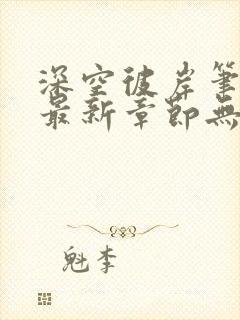 深空彼岸筆
最新章節無
魁李